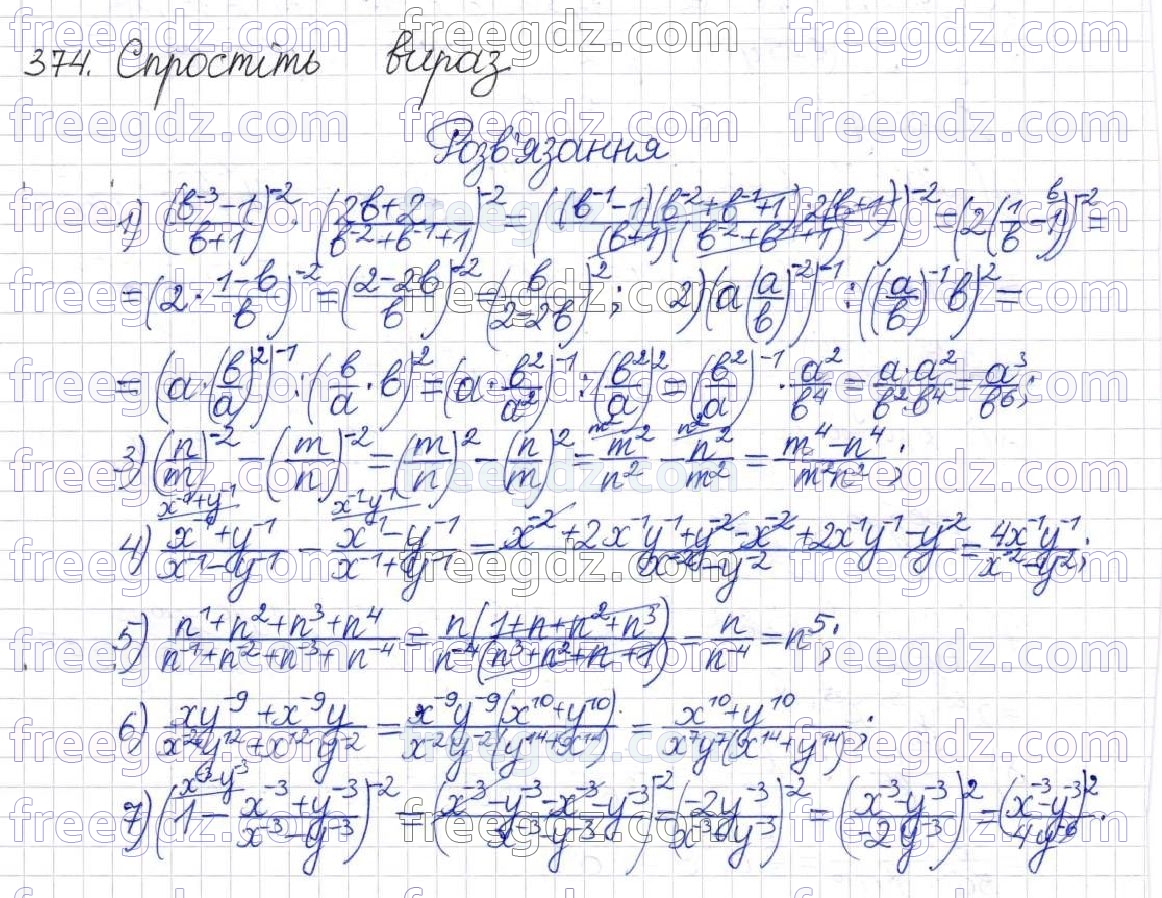 374. Спростіть вираз
Розв'язання
1) ((в⁻³-1)/(в+1))⁻² · ((2в+2)/(в⁻²+в⁻¹+1))⁻² = (((в⁻¹-1)(в⁻²+в⁻¹+1)·2(в+1))/((в+1)(в⁻²+в⁻¹+1)))⁻² = (2(1/в - 1))⁻² =
= (2 · (1-в)/в)⁻² = ((2-2в)/в)⁻² = (в/(2-2в))²; 2) (a(a/в)⁻²)⁻¹ : ((a/в)⁻¹в)² =
= (a·(в/a)²)⁻¹ : (в/a · в)² = (a · в²/a²)⁻¹ : (в²/a)² = (в²/a)⁻¹ · a²/в⁴ = (a·a²)/(в²·в⁴) = a³/в⁶;
3) (n/m)⁻² - (m/n)⁻² = (m/n)² - (n/m)² = m²/n² - n²/m² = (m⁴-n⁴)/(m²n²);
4) (x⁻¹+y⁻¹)/(x⁻¹-y⁻¹) - (x⁻¹-y⁻¹)/(x⁻¹+y⁻¹) = (x⁻²+2x⁻¹y⁻¹+y⁻²-x⁻²+2x⁻¹y⁻¹-y⁻²)/(x⁻²-y⁻²) = (4x⁻¹y⁻¹)/(x⁻²-y⁻²);
5) (n¹+n²+n³+n⁴)/(n⁻¹+n⁻²+n⁻³+n⁻⁴) = (n(1+n+n²+n³))/(n⁻⁴(n³+n²+n+1)) = n/n⁻⁴ = n⁵;
6) (xy⁻⁹+x⁻⁹y)/(x⁻²y¹²+x¹²y⁻²) = (x⁻⁹y⁻⁹(x¹⁰+y¹⁰))/(x⁻²y⁻²(y¹⁴+x¹⁴)) = (x¹⁰+y¹⁰)/(x⁷y⁷(x¹⁴+y¹⁴));
7) (1 - (x⁻³+y⁻³)/(x⁻³-y⁻³))⁻² = ((x⁻³-y⁻³-x⁻³-y⁻³)/(x⁻³-y⁻³))⁻² = ((-2y⁻³)/(x⁻³-y⁻³))⁻² = ((x⁻³-y⁻³)/(-2y⁻³))² = (x⁻³-y⁻³)²/(4y⁻⁶).